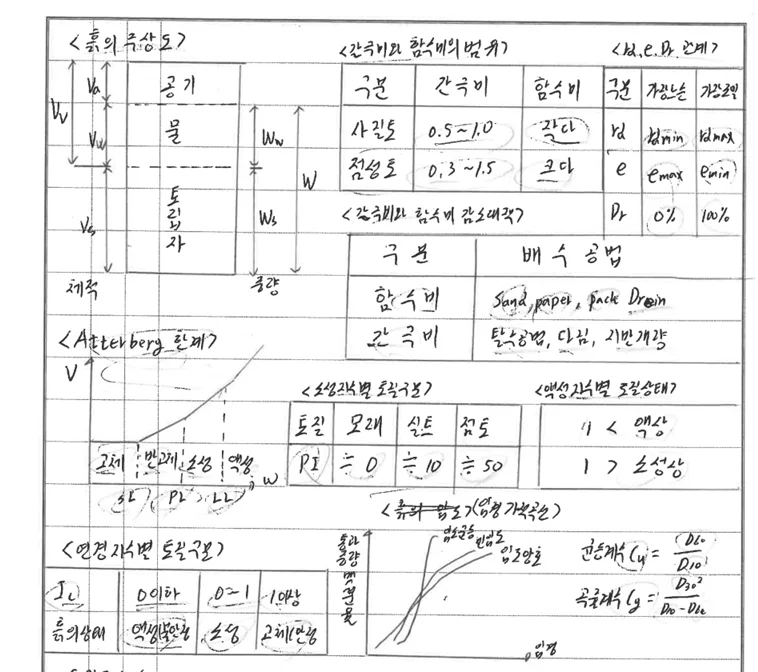 <흙의 주상도>
Va
Vw
Vv
Vs
공기
물
토립자
Ww
Ws
W
체적
중량
<간극비와 함수비의 범위>
구분 간극비 함수비
사질토 0.5~1.0 작다
점성토 0.3~1.5 크다
<rd, e, Dr 관계>
구분 가장느슨 가장조밀
rd rdmin rdmax
e emax emin
Dr 0% 100%
<간극비와 함수비 감소대책>
구분 배수공법
함수비 Sand, paper, pack Drain
간극비 탈수공법, 다짐, 지반개량
<Atterberg 한계>
V
고체 반고체 소성 액성
W
SL PL LL
<소성지수별 토질구분>
토질 모래 실트 점토
PI ≒ 0 ≒ 10 ≒ 50
<액성지수별 토질상태>
1 < 액상
1 > 소성상
<연경지수별 토질구분>
Ic 0이하 0~1 1이상
흙의상태 액성(불안정 소성 고체(안정
입도(입경가적곡선)>
통과중량백분율
입도균등
빈입도
입도양호
입경
균등계수 Cu = D60/D10
곡률계수 Cg = D30²/D10-D60